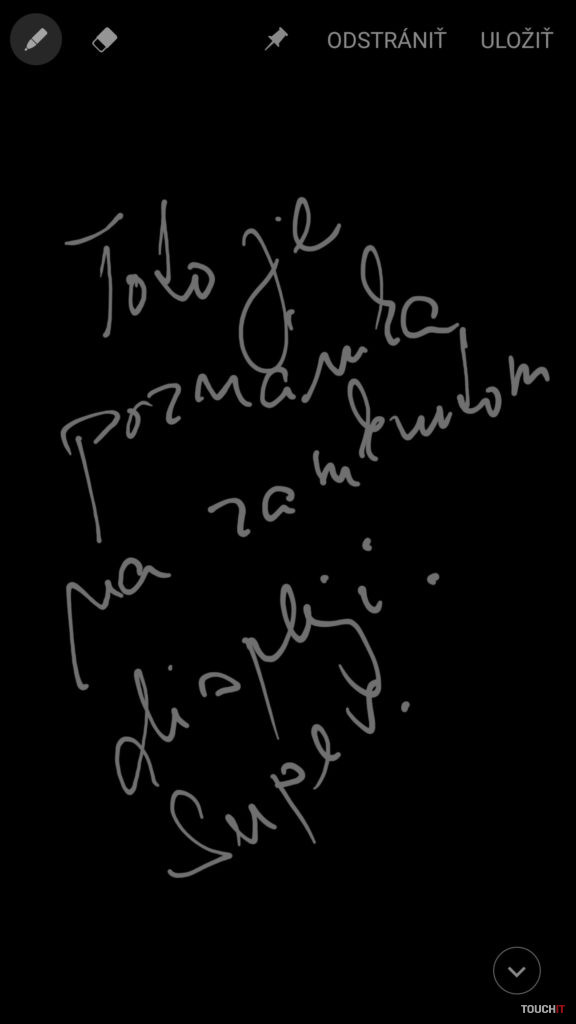 ODSTRÁNIŤ ULOŽIŤ
Toto je
poznamka
na zamknutom
displeji.
Super.
TOUCHIT